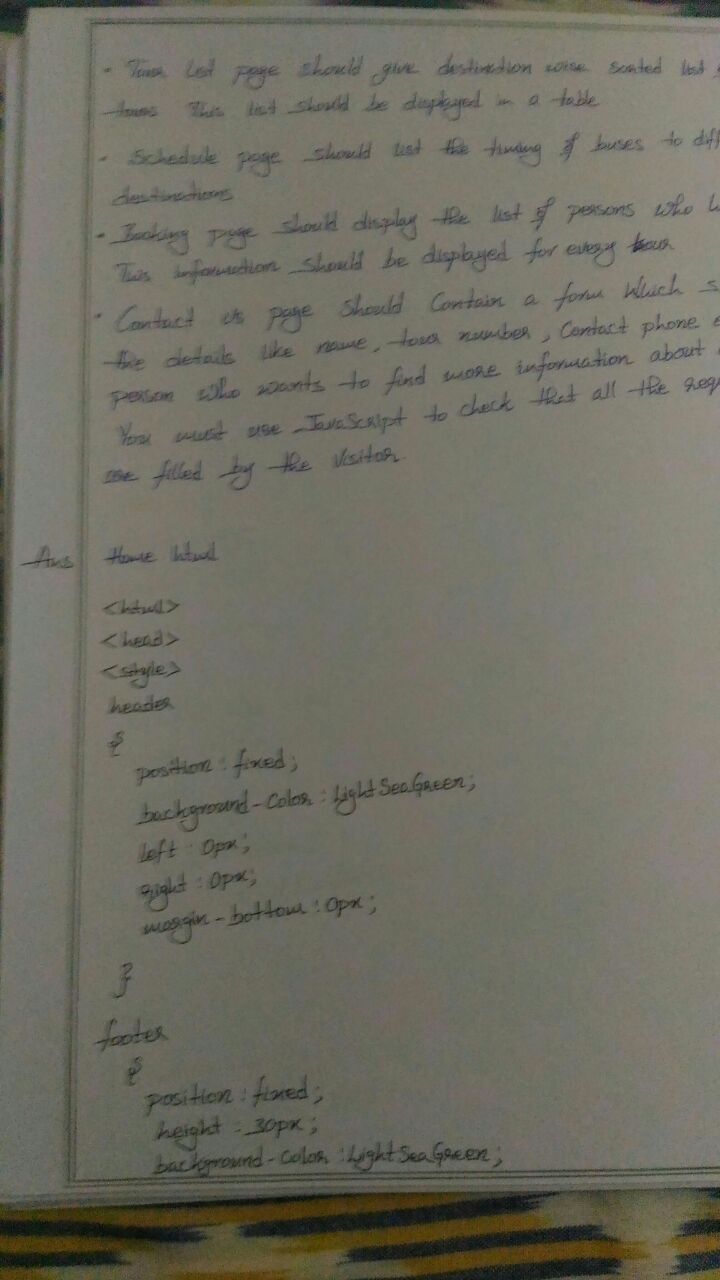 • Tour List page should give destination wise sorted list
tours This list should be displayed in a table
• Schedule page should list the timing of buses to diff
destinations
• Booking page should display the list of persons who
This information should be displayed for every tour
• Contact us page should Contain a form Which
the details like name, tour number, Contact phone
person who wants to find more information about
You must use JavaScript to check that all the requ
are filled by the Visitor.
Ans Home html
<html>
<head>
<style>
header
{
position : fixed;
background-Color : LightSeaGreen;
left : 0px;
right : 0px;
margin-bottom : 0px;
}
footer
{
position : fixed;
height : 30px;
background-Color : LightSeaGreen;